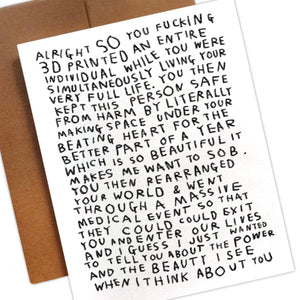 ALRIGHT SO YOU FUCKING
3D PRINTED AN ENTIRE
INDIVIDUAL WHILE YOU WERE
SIMULTANEOUSLY LIVING YOUR
VERY FULL LIFE. YOU THEN
KEPT THIS PERSON SAFE
FROM HARM BY LITERALLY
MAKING SPACE UNDER YOUR
BEATING HEART FOR THE
BETTER PART OF A YEAR
WHICH IS SO BEAUTIFUL IT
MAKES ME WANT TO SOB.
YOU THEN REARRANGED
YOUR WORLD & WENT
THROUGH A MASSIVE
MEDICAL EVENT SO THAT
THEY COULD COULD EXIT
YOU AND ENTER OUR LIVES
AND I GUESS I JUST WANTED
TO TELL YOU ABOUT THE POWER
AND THE BEAUTY I SEE
WHEN I THINK ABOUT YOU